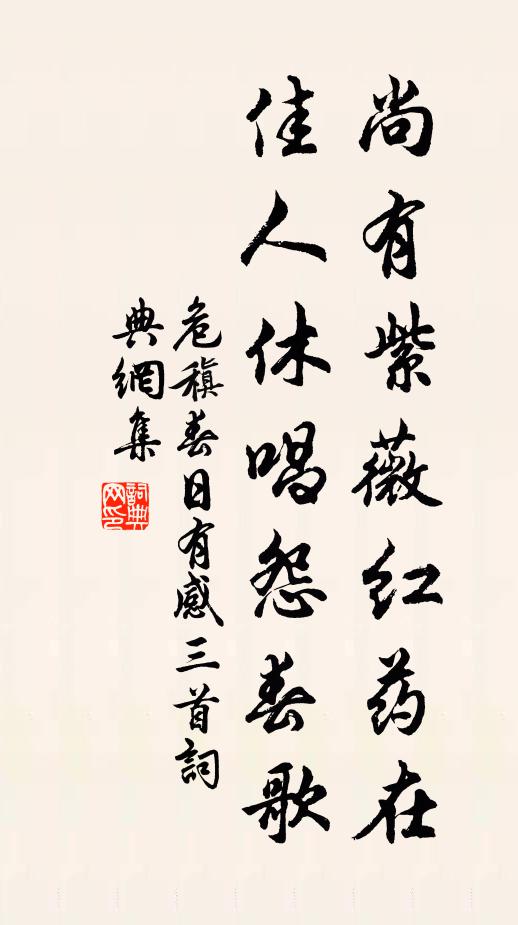 尚有紫薇红药在
佳人休唱怨春歌
危稹春日有感三首詞
典網集
詞典
网印